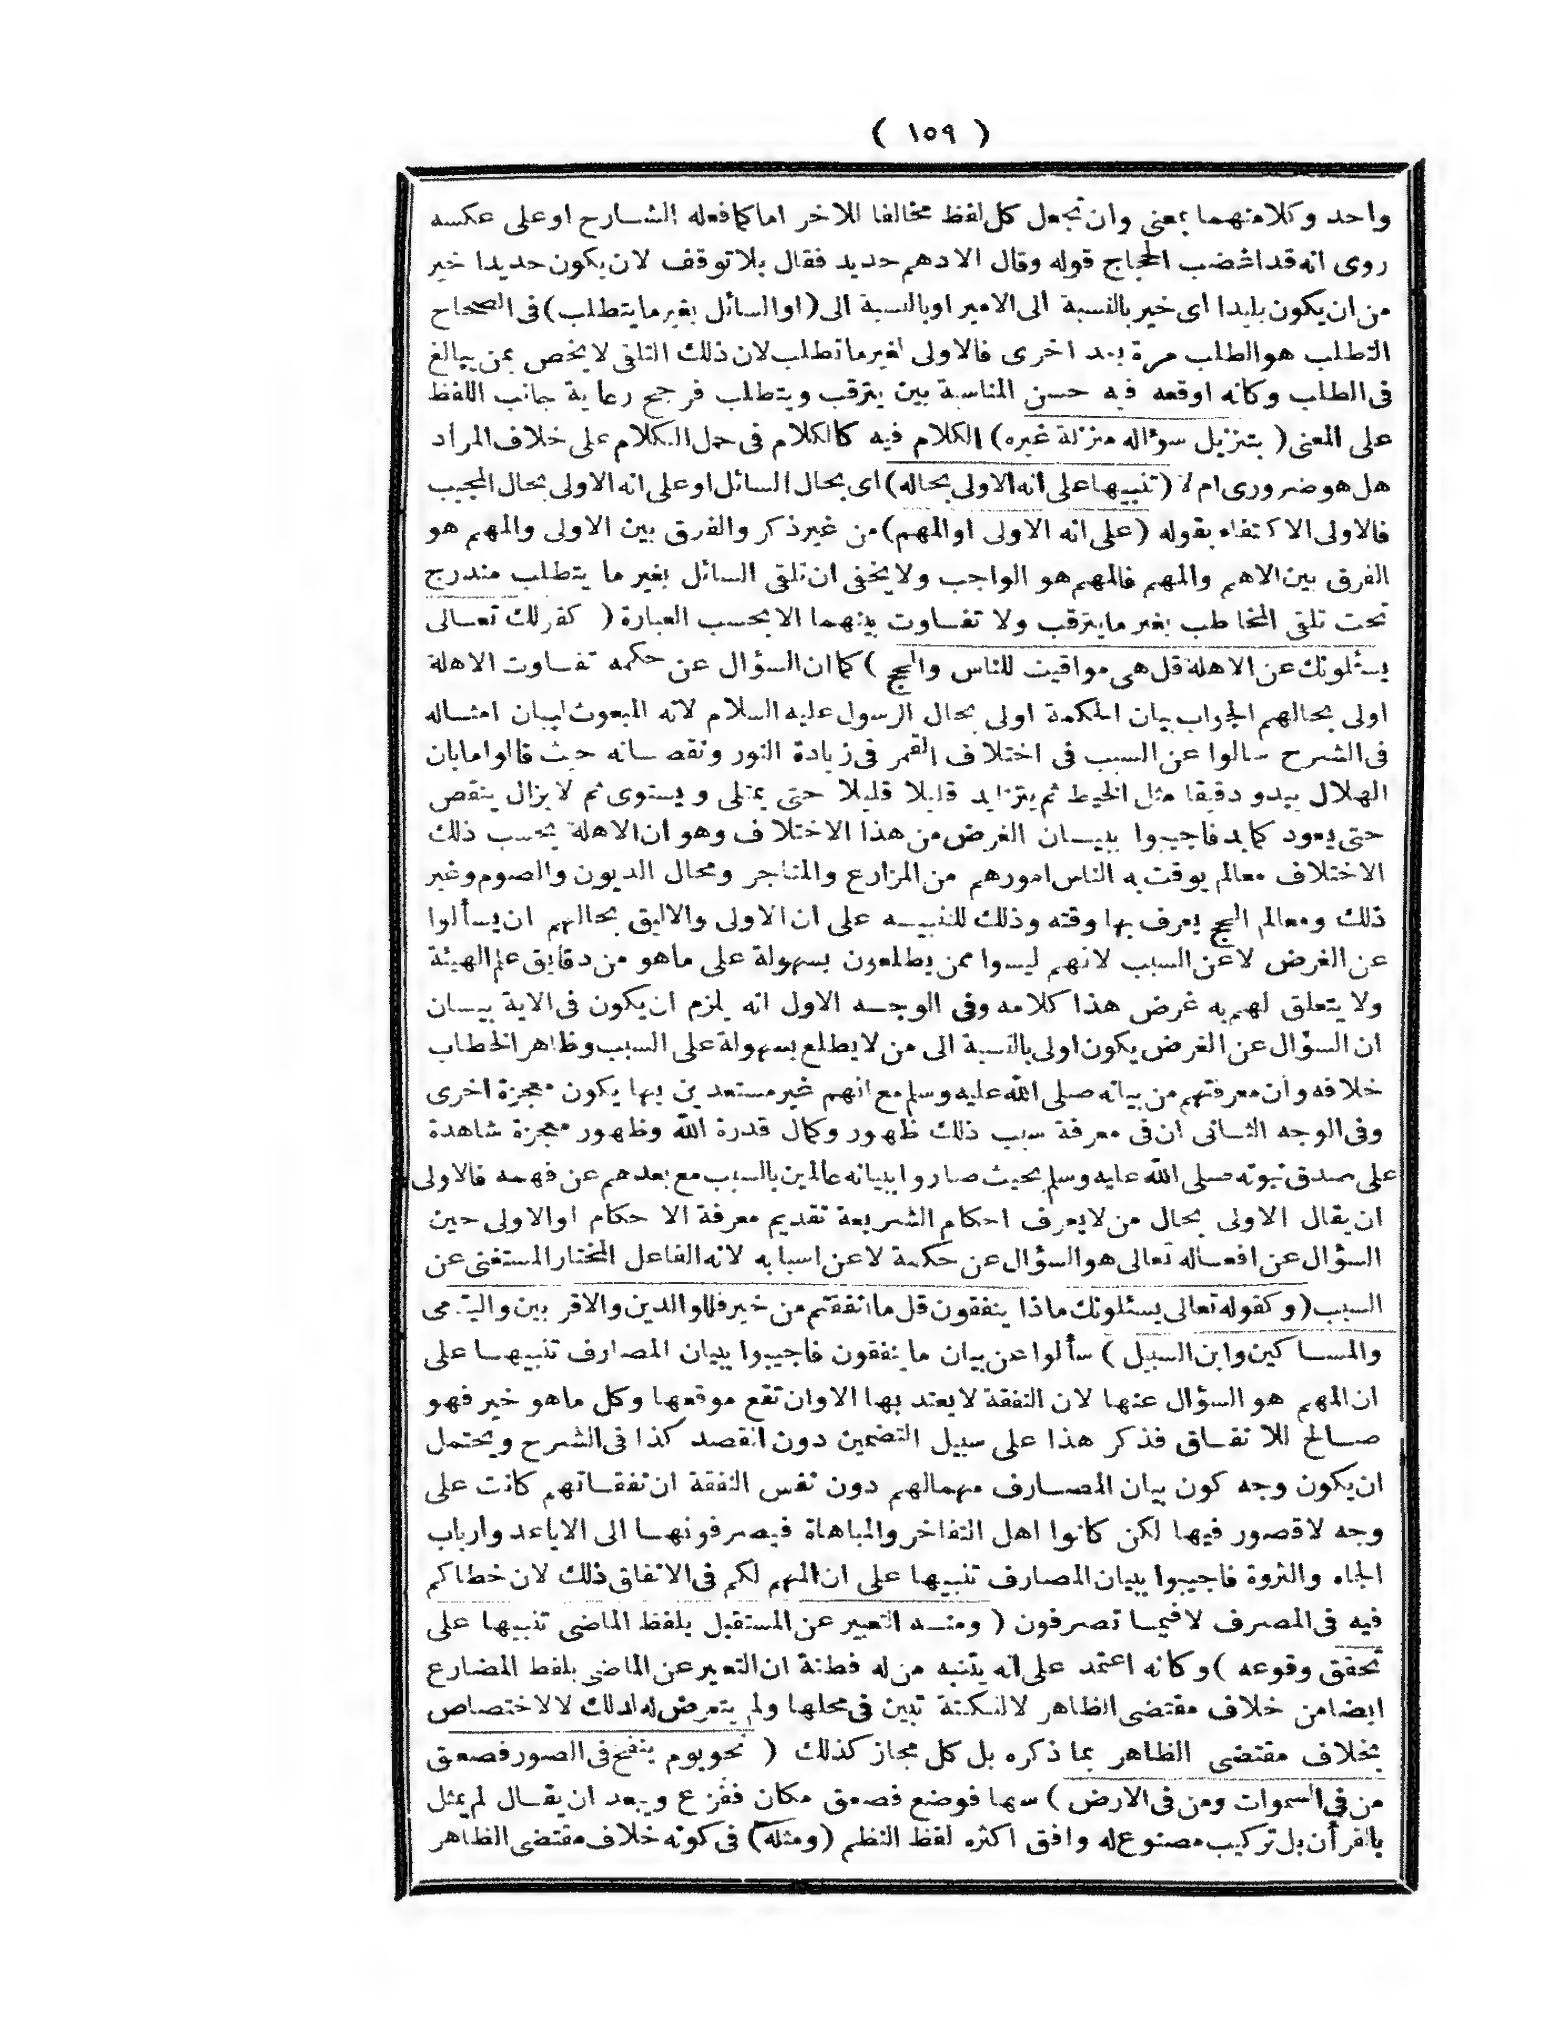 ( ١٥٩ )
واحد وكلامنهما بمعنى وان تجعل كل لفظ مخالفا للاخر اما كما فعله الشارح او على عكسه
روى انه قد اغضب الحجاج قوله وقال الادهم حديد فقال بلا توقف لان يكون حديدا خير
من ان يكون بليدا اى خير بالنسبة الى الامير او بالنسبة الى (او السائل بغير ما يتطلب) فى الصحاح
التطلب هو الطلب مرة بعد اخرى فالاولى لغير ما تطلب لان ذلك التلقى لا يخص بمن يبالغ
فى الطلب وكانه اوقعه فيه حسن المناسبة بين يترقب ويتطلب فرجح رعاية جانب اللفظ
على المعنى ( بتنزيل سؤاله منزلة غيره) الكلام فيه كالكلام فى حمل الكلام على خلاف المراد
هل هو ضرورى ام لا (تنبيها على انه الاولى بحاله) اى بحال السائل او على انه الاولى بحال المجيب
فالاولى الاكتفاء بقوله (على انه الاولى او المهم) من غير ذكر والفرق بين الاولى والمهم هو
الفرق بين الاهم والمهم فالمهم هو الواجب ولا يخفى ان تلقى السائل بغير ما يتطلب مندرج
تحت تلقى المخاطب بغير ما يترقب ولا تفاوت بينهما الا بحسب العبارة ( كقولك تعالى
يسئلونك عن الاهلة قل هى مواقيت للناس والحج ) كما ان السؤال عن حكمه تفاوت الاهلة
اولى بحالهم الجواب ببيان الحكمة اولى بحال الرسول عليه السلام لانه المبعوث لبيان امثاله
فى الشرح سالوا عن السبب فى اختلاف القمر فى زيادة النور ونقصانه حيث قالوا مابان
الهلال يبدو دقيقا مثل الخيط ثم يتزايد قليلا قليلا حتى يمتلى ويستوى ثم لا يزال ينقص
حتى يعود كمابد فاجيبوا ببيان الغرض من هذا الاختلاف وهو ان الاهلة بحسب ذلك
الاختلاف معالم يوقت به الناس امورهم من المزارع والمتاجر ومحال الديون والصوم وغير
ذلك ومعالم الحج يعرف بها وقته وذلك للتنبيه على ان الاولى والاليق بحالهم ان يسألوا
عن الغرض لا عن السبب لانهم ليسوا ممن يطلعون بسهولة على ماهو من دقايق علم الهيئة
ولا يتعلق لهم به غرض هذا كلامه وفى الوجه الاول انه يلزم ان يكون فى الاية بيان
ان السؤال عن الغرض يكون اولى بالنسبة الى من لا يطلع بسهولة على السبب وظاهر الخطاب
خلافه وان معرفتهم من بيانه صلى الله عليه وسلم مع انهم غير مستعدين بها يكون معجزة اخرى
وفى الوجه الثانى ان فى معرفة سبب ذلك ظهور وكمال قدرة الله وظهور معجزة شاهدة
على صدق نبوته صلى الله عليه وسلم بحيث صاروا ببيانه عالمين بالسبب مع بعدهم عن فهمه فالاولى
ان يقال الاولى بحال من لا يعرف احكام الشريعة تقديم معرفة الاحكام او الاولى حين
السؤال عن افعاله تعالى هو السؤال عن حكمة لا عن اسبابه لانه الفاعل المختار المستغنى عن
السبب (وكقوله تعالى يسئلونك ماذا ينفقون قل ما انفقتم من خير فللوالدين والاقربين واليتمى
والمساكين وابن السبيل ) سألوا عن بيان ما ينفقون فاجيبوا ببيان المصارف تنبيها على
ان المهم هو السؤال عنها لان النفقة لا يعتد بها الا وان تقع موقعها وكل ماهو خير فهو
صالح للانفاق فذكر هذا على سبيل التضمين دون القصد كذا فى الشرح ويحتمل
ان يكون وجه كون بيان المصارف مهمالهم دون نفس النفقة ان نفقاتهم كانت على
وجه لا قصور فيها لكن كانوا اهل التفاخر والمباهاة فيصرفونها الى الاباعد وارباب
الجاه والثروة فاجيبوا ببيان المصارف تنبيها على ان المهم لكم فى الانفاق ذلك لان خطاكم
فيه فى المصرف لا فيما تصرفون ( ومنه التعبير عن المستقبل بلفظ الماضى تنبيها على
تحقق وقوعه ) وكانه اعتمد على انه يتنبه من له فطنة ان التعبير عن الماضى بلفظ المضارع
ايضا من خلاف مقتضى الظاهر لالنكتة تبين فى محلها ولم يتعرض له لذلك لالاختصاص
بخلاف مقتضى الظاهر بما ذكره بل كل مجاز كذلك ( نحو يوم ينفخ فى الصور فصعق
من فى السموات ومن فى الارض ) سها فوضع فصعق مكان ففزع ويبعد ان يقال لم يمثل
بالقرأن بل تركيب مصنوع له وافق اكثره لفظ النظم (ومثله) فى كونه خلاف مقتضى الظاهر